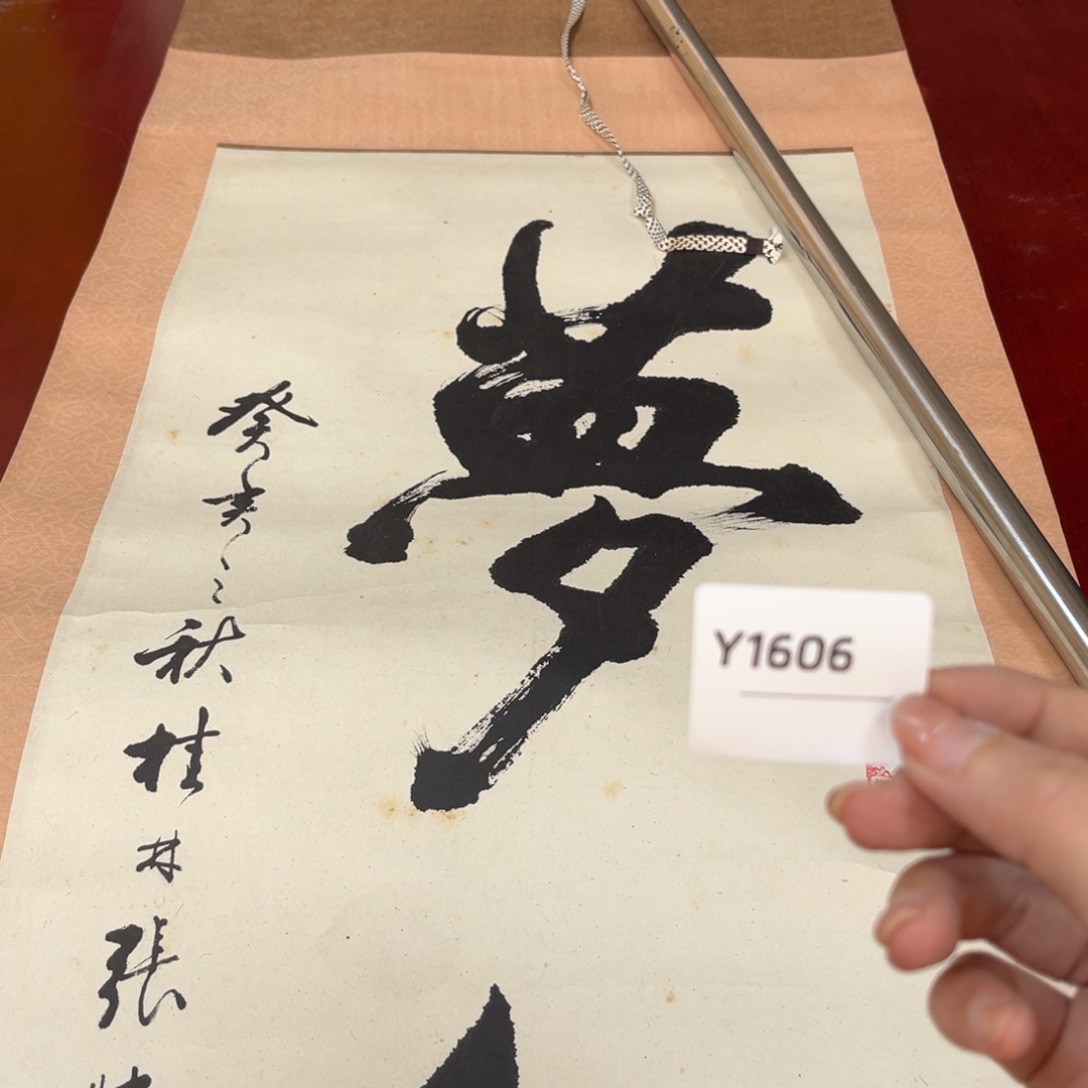 夢
癸亥之秋桂林張
Y1606